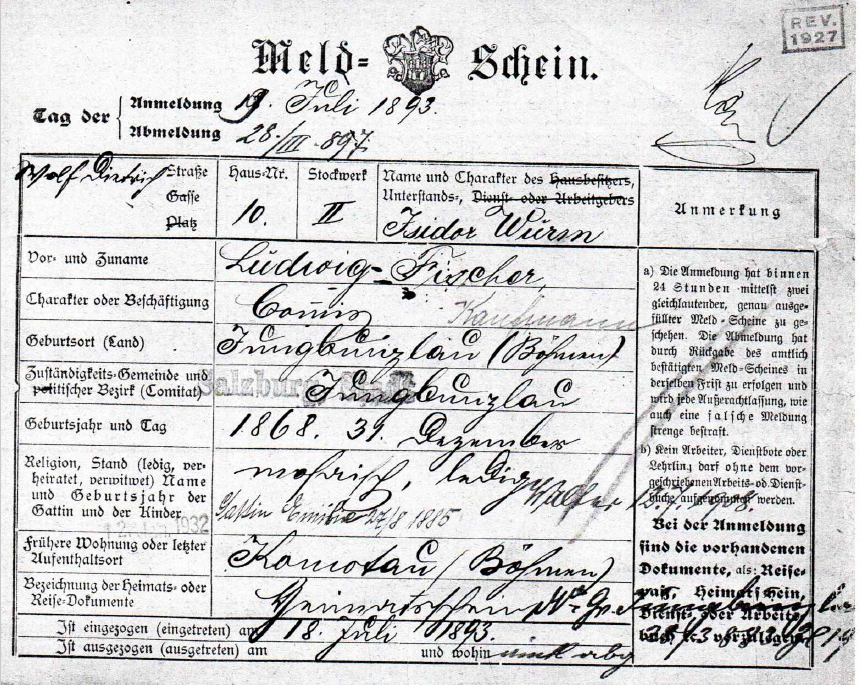 REV.
1927
Meld- Schein.
Tag der
Anmeldung 19. Juli 1893.
Abmeldung 28./III 897
Wolf Dietrich Straße
Gasse
Platz
Haus-Nr.
10.
Stockwerk
II
Name und Charakter des Hausbesitzers,
Unterstands-, Dienst- oder Arbeitgebers
Isidor Würm
Anmerkung
Vor- und Zuname
Ludwig Fischer,
Charakter oder Beschäftigung
Commis Kaufmann
Geburtsort (Land)
Jungbunzlau (Böhmen)
Zuständigkeits-Gemeinde und
politischer Bezirk (Comitat)
Salzburg Stadt
Jungbunzlau
Geburtsjahr und Tag
1868. 31. Dezember
Religion, Stand (ledig, ver-
heiratet, verwitwet) Name
und Geburtsjahr der
Gattin und der Kinder
mosaisch, ledig
Walter 12.7.1908.
Gattin Emilie 27/8 1885
1932
Frühere Wohnung oder letzter
Aufenthaltsort
Komotau (Böhmen)
Bezeichnung der Heimats- oder
Reise-Dokumente
Heimatschein
Ist eingezogen (eingetreten) am 18. Juli 1893.
Ist ausgezogen (ausgetreten) am
und wohin
a) Die Anmeldung hat binnen
24 Stunden mittelst zwei
gleichlautender, genau ausge-
füllter Meld-Scheine zu ge-
schehen. Die Abmeldung hat
durch Rückgabe des amtlich
bestätigten Meld-Scheines in
derselben Frist zu erfolgen und
wird jede Außerachtlassung, wie
auch eine falsche Meldung
strenge bestraft.
b) Kein Arbeiter, Dienstbote oder
Lehrling darf ohne dem vor-
geschriebenen Arbeits- od. Dienst-
buche aufgenommen werden.
Bei der Anmeldung
sind die vorhandenen
Dokumente, als: Reise-
paß, Heimatschein,
Dienst- oder Arbeits-
buch 2c. vorzulegen.